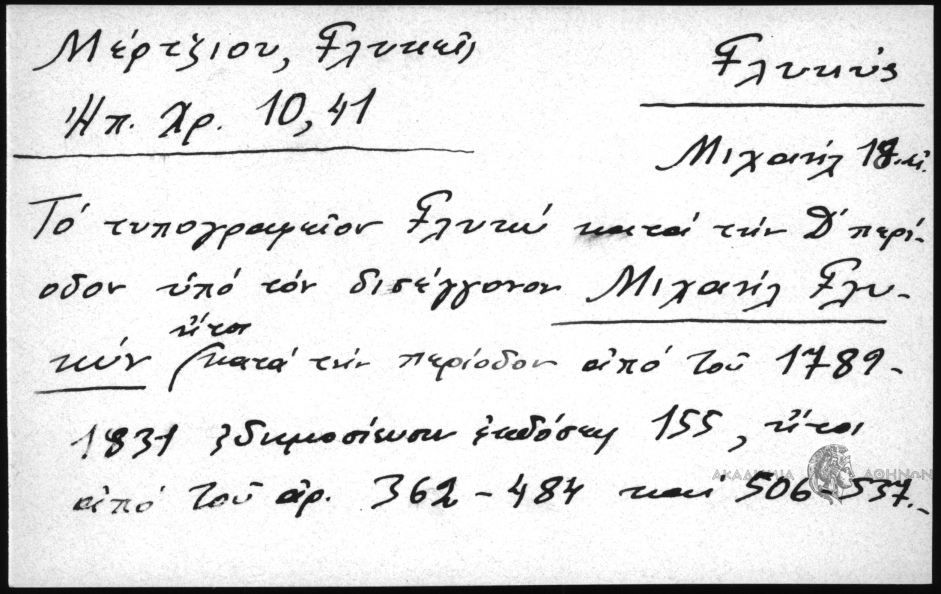 Μέρτζιου, Γλυκεῖς
Γλυκύς
Ἠπ. Χρ. 10,41
Μιχαήλ 18.αἰ.
Τό τυπογραφεῖον Γλυκύ κατά τήν Δ' περί-
οδον ὑπό τόν δισέγγονον Μιχαήλ Γλυ-
κύν (ἤτοι κατά τήν περίοδον ἀπό τοῦ 1789-
1831 ἐδημοσίευσεν ἐκδόσεις 155, ἤτοι
ἀπό τοῦ ἀρ. 362-484 καί 506-537.-
ΑΚΑΔΗΜΙΑ ΑΘΗΝΩΝ